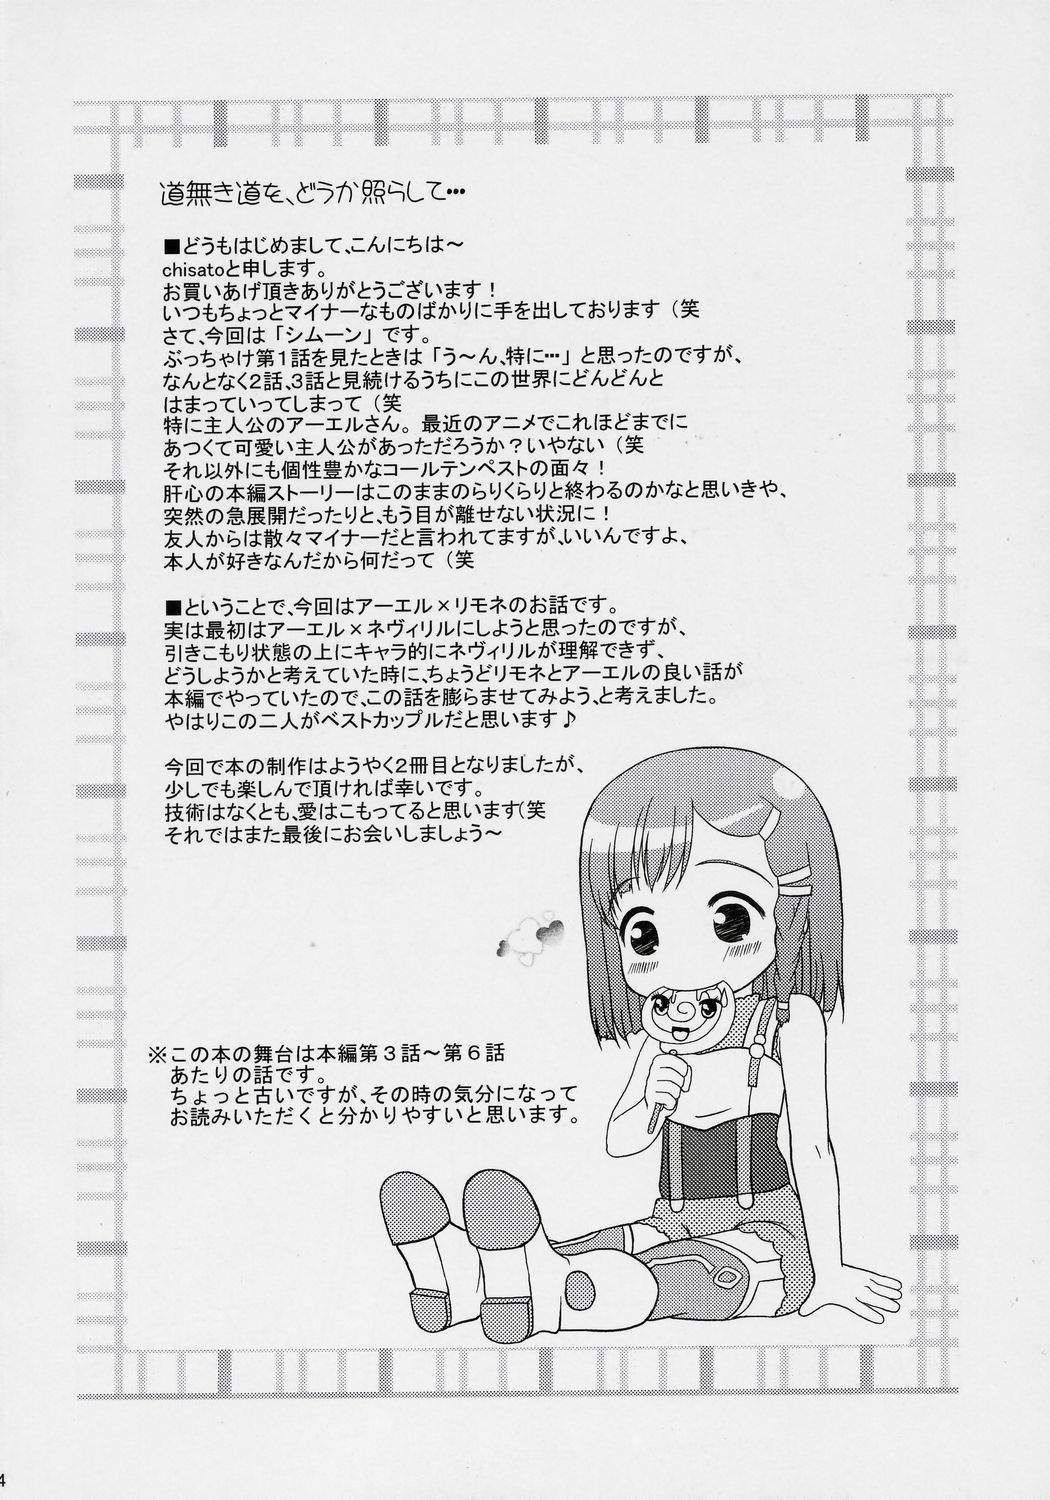 道無き道を、どうか照らして…
■どうもはじめまして、こんにちは～
chisatoと申します。
お買いあげ頂きありがとうございます！
いつもちょっとマイナーなものばかりに手を出しております（笑
さて、今回は「シムーン」です。
ぶっちゃけ第１話を見たときは「う～ん、特に…」と思ったのですが、
なんとなく２話、３話と見続けるうちにこの世界にどんどんと
はまっていってしまって（笑
特に主人公のアーエルさん。最近のアニメでこれほどまでに
あつくて可愛い主人公があっただろうか？いやない（笑
それ以外にも個性豊かなコールテンペストの面々！
肝心の本編ストーリーはこのままのらりくらりと終わるのかなと思いきや、
突然の急展開だったりと、もう目が離せない状況に！
友人からは散々マイナーだと言われてますが、いいんですよ、
本人が好きなんだから何だって（笑
■ということで、今回はアーエル×リモネのお話です。
実は最初はアーエル×ネヴィリルにしようと思ったのですが、
引きこもり状態の上にキャラ的にネヴィリルが理解できず、
どうしようかと考えていた時に、ちょうどリモネとアーエルの良い話が
本編でやっていたので、この話を膨らませてみよう、と考えました。
やはりこの二人がベストカップルだと思います♪
今回で本の制作はようやく２冊目となりましたが、
少しでも楽しんで頂ければ幸いです。
技術はなくとも、愛はこもってると思います（笑
それではまた最後にお会いしましょう～
※この本の舞台は本編第３話～第６話
あたりの話です。
ちょっと古いですが、その時の気分になって
お読みいただくと分かりやすいと思います。
4